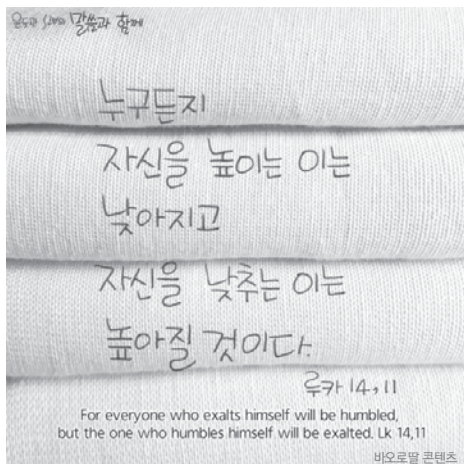 말씀과 함께
누구든지
자신을 높이는 이는
낮아지고
자신을 낮추는 이는
높아질 것이다.
루카 14,11
For everyone who exalts himself will be humbled,
but the one who humbles himself will be exalted. Lk 14,11
바오로딸 콘텐츠